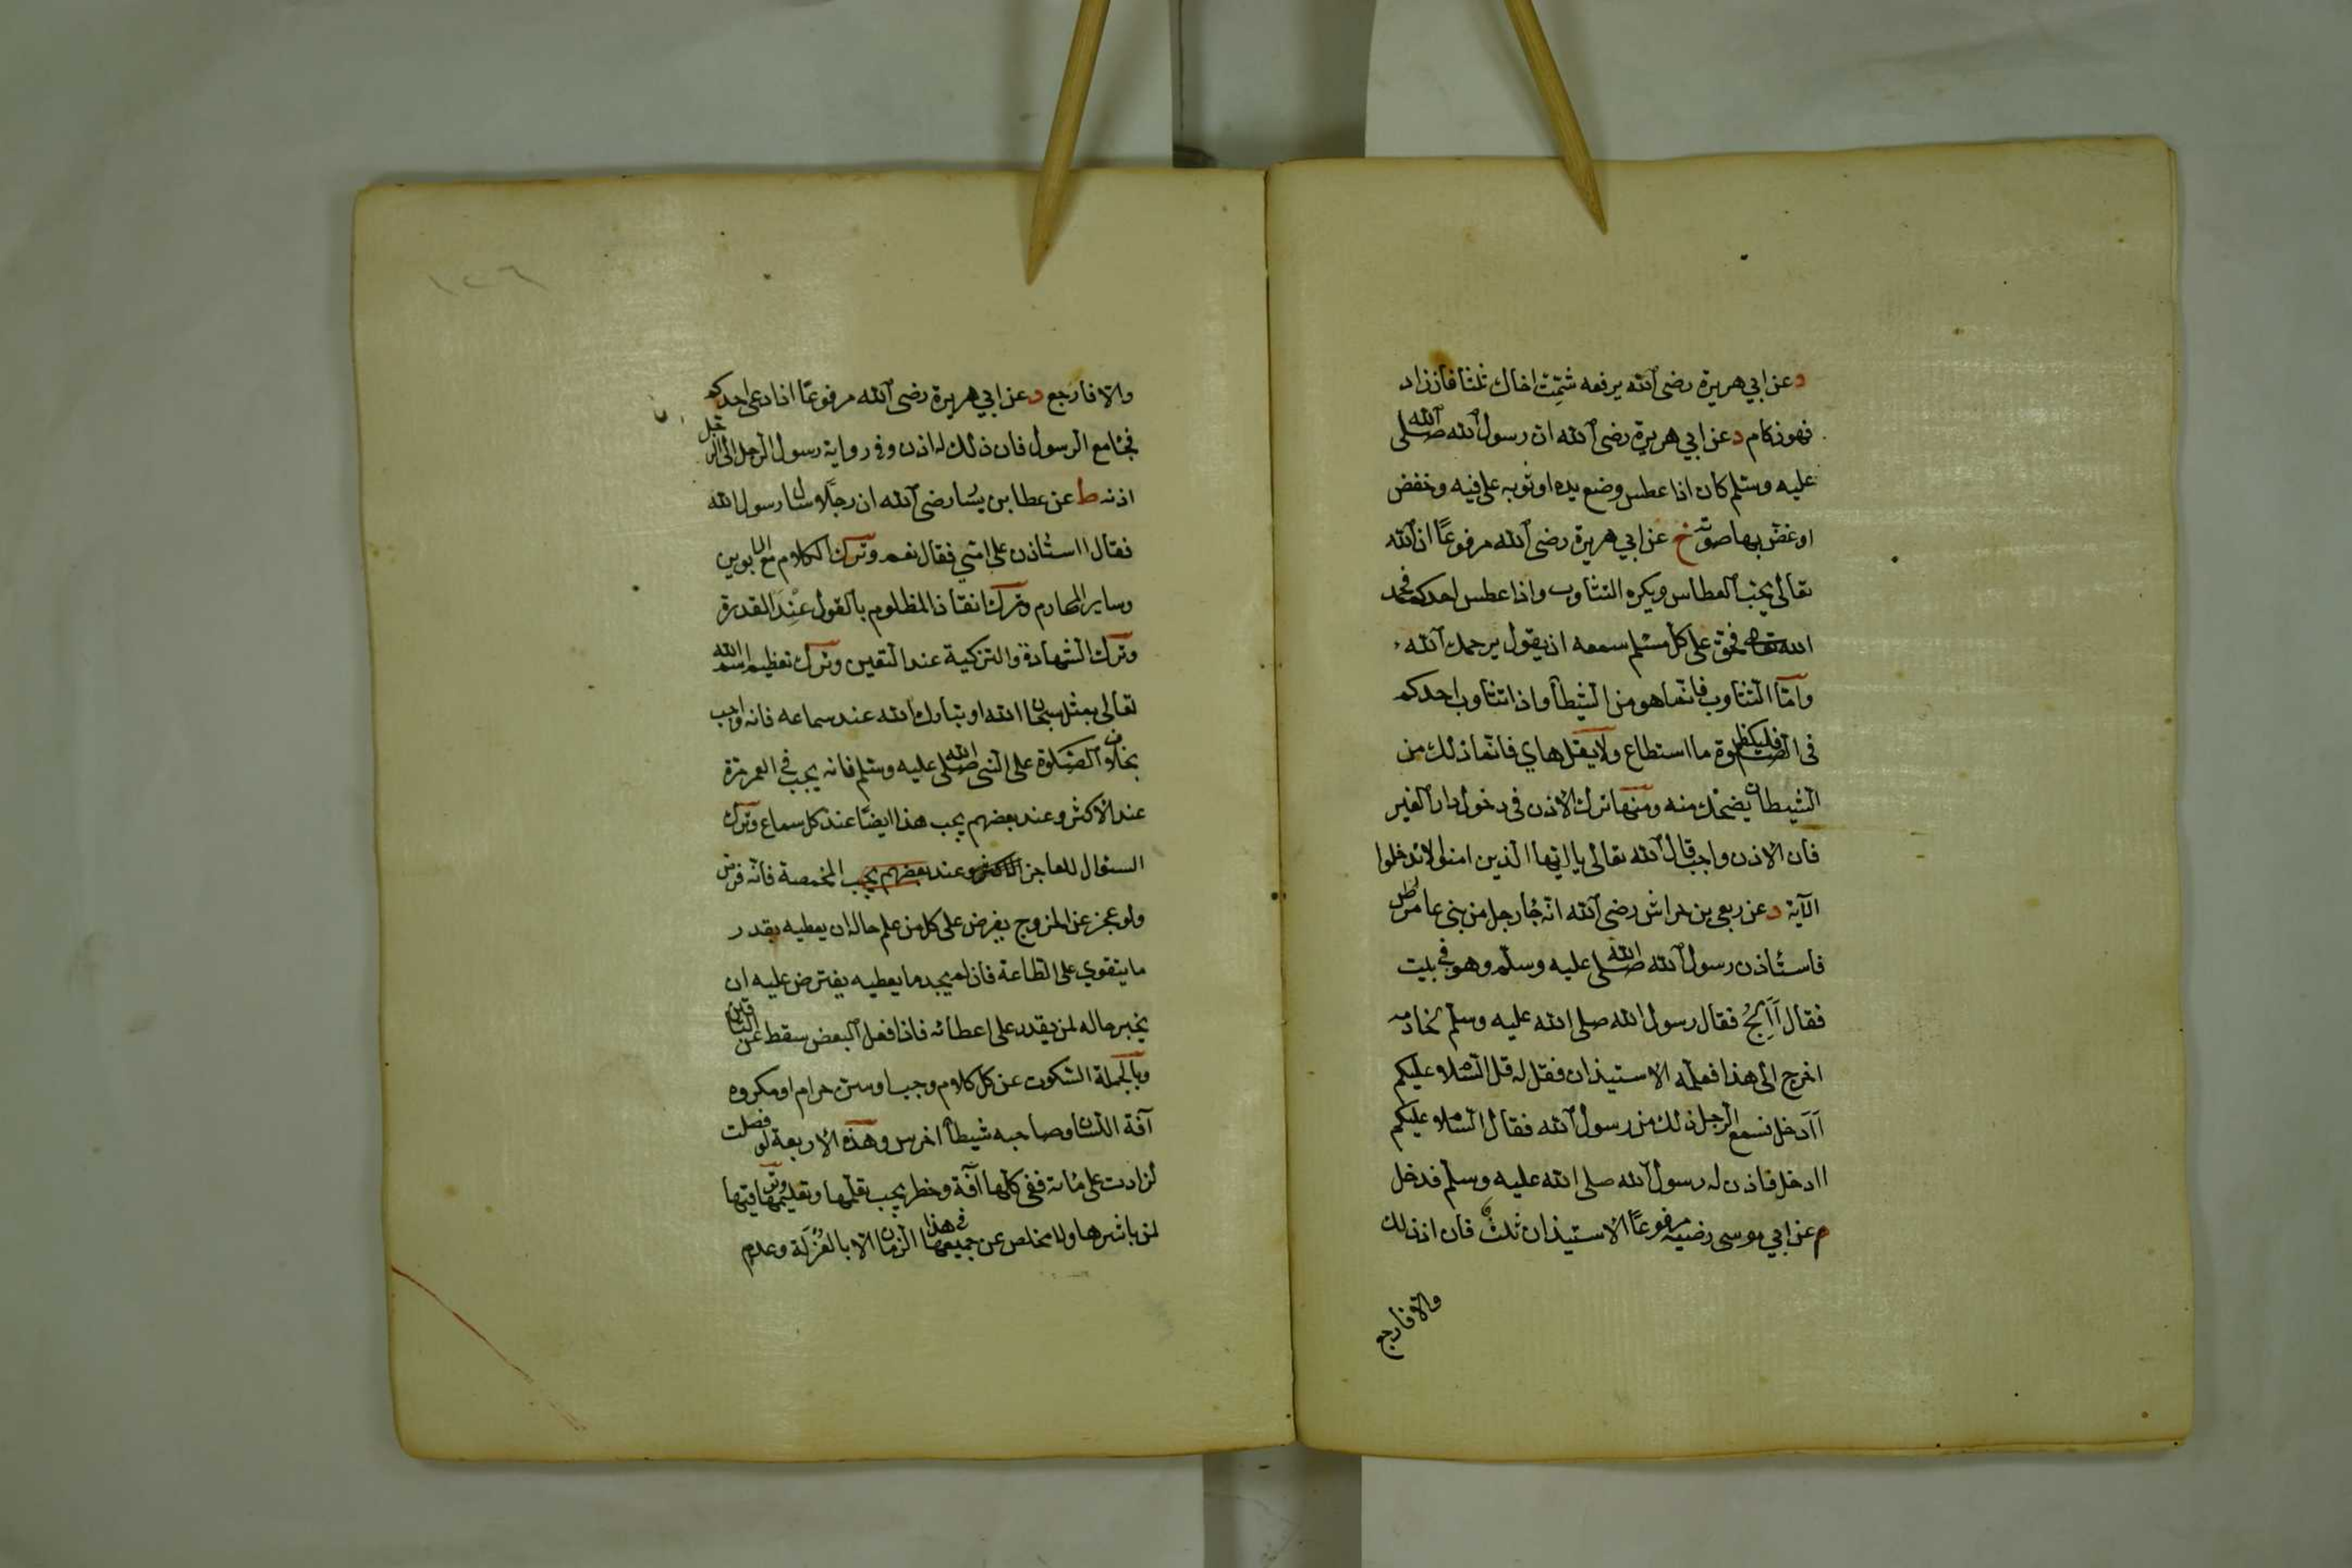 د عن ابي هريرة رضى الله يرفعه شمّت اخاك ثلثا فان زاد
فهو زكام د عن ابي هريرة رضى الله ان رسول الله صلى الله
عليه وسلم كان اذا عطس وضع يده او ثوبه على فيه وخفض
او غض بها صوته خ عن ابي هريرة رضى الله مرفوعًا ان الله
تعالى يحب العطاس ويكره التثاوب واذا عطس احدكم فحمد
الله فحق على كل مسلم سمعه ان يقول يرحمك الله
وامّا التثاوب فانّما هو من الشيطان واذا تثاوب احدكم
فى الصلوة فليكظم ما استطاع ولا يقل هاي فانّما ذلك من
الشيطان يضحك منه ومنها ترك الاذن فى دخول دار الغير
فان الاذن واجب قال الله تعالى يا ايّها الذين امنوا لا تدخلوا
الآية د عن ربعى بن حراش رضى الله انّه جاء رجل من بنى عامر
فاستأذن رسول الله صلى الله عليه وسلم وهو فى بيت
فقال أألج فقال رسول الله صلى الله عليه وسلّم لخادمه
اخرج الى هذا فعلّمه الاستيذان فقل له قل السّلام عليكم
أأدخل فسمع الرجل ذلك من رسول الله فقال السّلام عليكم
اادخل فاذن له رسول الله صلى الله عليه وسلّم فدخل
م عن ابي موسى رضيه مرفوعًا الاستيذان ثلث فان اذن لك
والّا فارجع
١٢٦
والّا فارجع د عن ابي هريرة رضى الله مرفوعًا اذا دعى احدكم
فجاء مع الرسول فان ذلك له اذن وفى رواية رسول الرجل الى الرجل
اذنه ط عن عطا بن يسار رضى الله ان رجلا سال رسول الله
فقال ااستاذن على امّي فقال نعم وترك الكلام مع الابوين
وساير المحارم وترك انقاذ المظلوم بالقول عند القدرة
وترك الشهادة والتزكية عند التعين وترك تعظيم اسم الله
تعالى بمثل سبحان الله او تبارك الله عند سماعه فانه واجب
بخلاف الصّلوة على النبى صلى الله عليه وسلم فانه يجب فى العمر مرّة
عند الاكثر وعند بعضهم يجب هذا ايضًا عند كل سماع وترك
السئوال للعاجز الاكثر وعند بعضهم يجب المخمصة فانّه فرض
ولو عجز عن الخروج يفرض على كل من علم حاله ان يعطيه بقدر
ما يتقوي على الطاعة فان لم يجد ما يعطيه يفترض عليه ان
يخبر حاله لمن يقدر على اعطائه فاذا فعل البعض سقط عن الباقين
وبالجملة السّكوت عن كل كلام وجب او سنّ حرام او مكروه
آفة اللّسان وصاحبه شيطان اخرس وهذه الاربعة لو فصلت
لزادت على مائة ففى كلّها آفة وخطر يجب تعلّمها وتعليمها وتوقيتها
لمن باشرها ولا مخلص عن جميعها فى هذا الزمان الّا بالعُزلَة وعدم